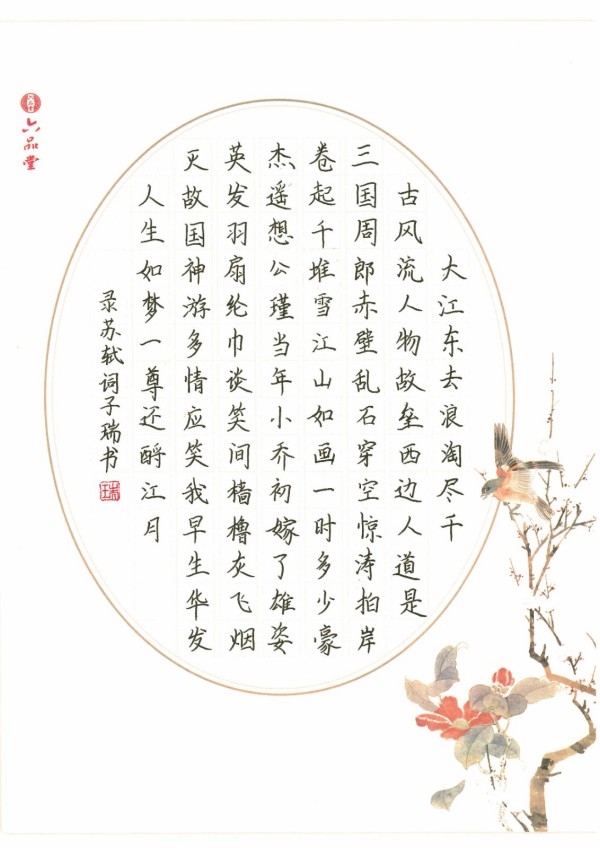 大江东去浪淘尽千
古风流人物故垒西边人道是
三国周郎赤壁乱石穿空惊涛拍岸
卷起千堆雪江山如画一时多少豪
杰遥想公瑾当年小乔初嫁了雄姿
英发羽扇纶巾谈笑间樯橹灰飞烟
灭故国神游多情应笑我早生华发
人生如梦一尊还酹江月
录苏轼词子瑞书
六品堂